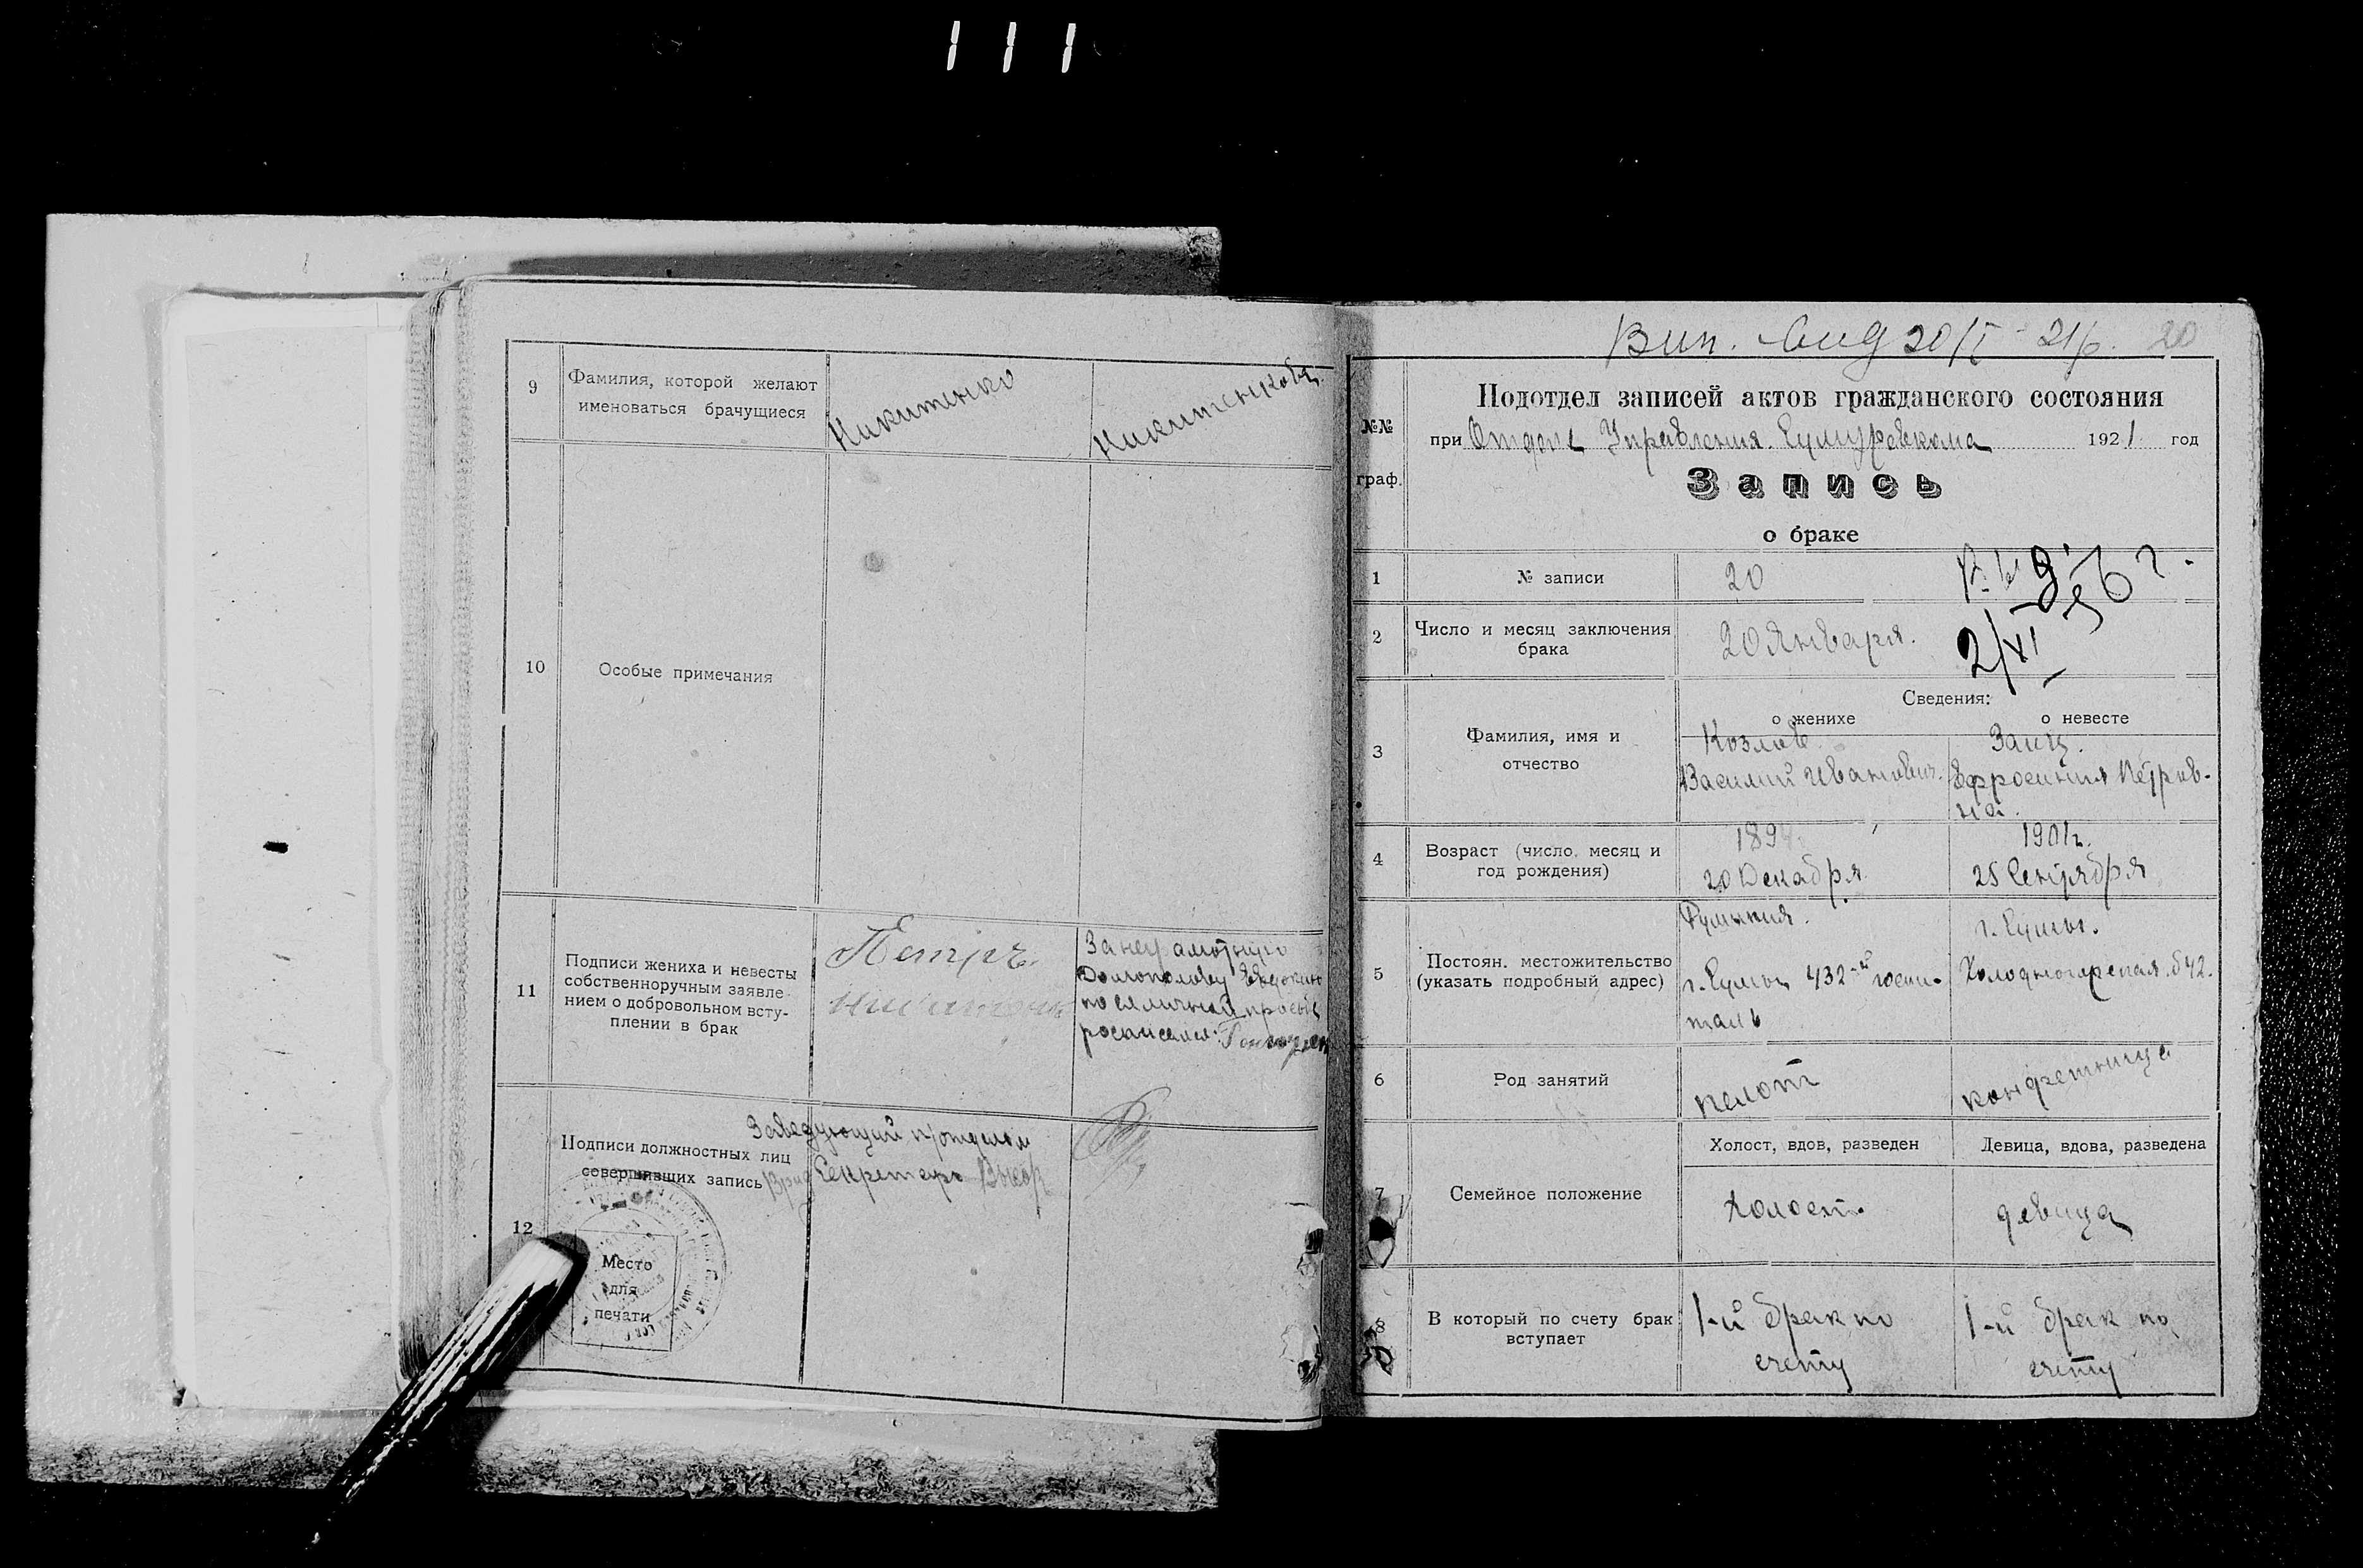 111
9
Фамилия, которой желают
именоваться брачущиеся
Никитенко
Никитенкова.
10
Особые примечания
11
Подписи жениха и невесты
собственноручным заявле-
нием о добровольном всту-
плении в брак
Петръ
За неграмотную
по ея личной просьбе
12
Подписи должностных лиц
совершивших запись
Заведующий п/отделом
Секретарь
Место
для
печати
20/I 21 г. 20
№№
граф.
Подотдел записей актов гражданского состояния
при Отделе Управления 1921 год
Запись
о браке
1
№ записи
20
2
Число и месяц заключения
брака
20 Января.
2/XI
56 г.
Сведения:
о женихе
о невесте
3
Фамилия, имя и
отчество
Козлов
Василий Иванович.
Заиц.
Ефросиния Петров-
на.
4
Возраст (число, месяц и
год рождения)
20 Декабря
1901 г.
25 Сентября
5
Постоян. местожительство
(указать подробный адрес)
Румыния.
г. Сумы 432-й госпи-
таль
г. Сумы.
6
Род занятий
пелот
конфетница
7
Семейное положение
Холост, вдов, разведен
Девица, вдова, разведена
холост.
девица
8
В который по счету брак
вступает
1-й брак по
счету
1-й брак по
счету